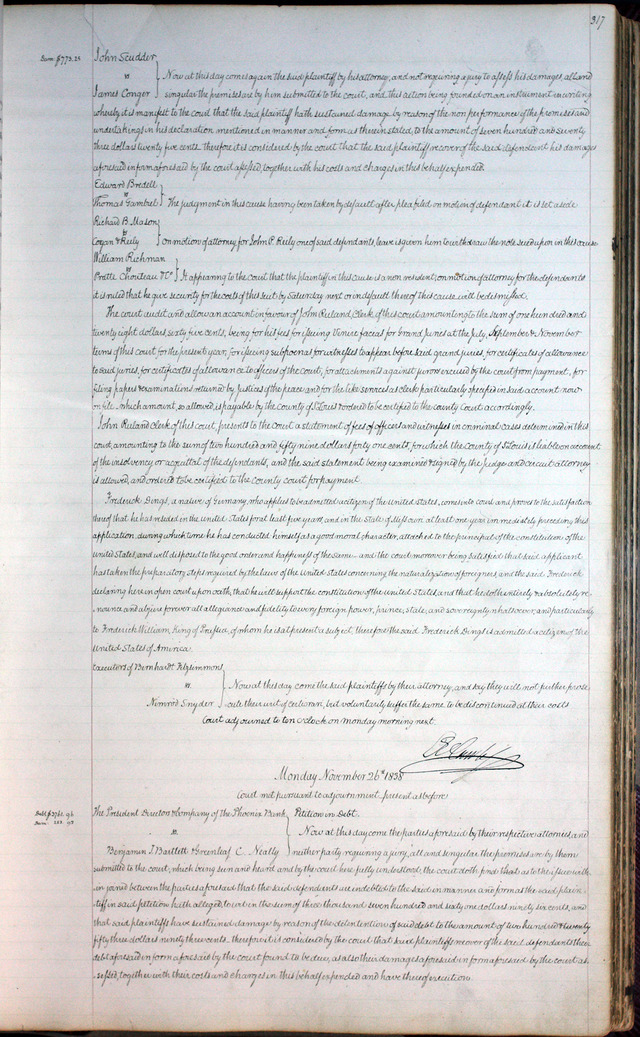 317
Dam. $773.25
John Scudder
vs
James Conger
Now at this day comes again the said plaintiff by his attorney, and not requiring a jury to assess his damages, all and
singular the premises are by him submitted to the court, and this action being founded on an instrument in writing
whereby it is manifest to the court that the said plaintiff hath sustained damage by reason of the non performance of the premises and
undertakings in his declaration mentioned in manner and form as therein stated, to the amount of seven hundred and seventy
three dollars twenty five cents. therefore it is considered by the court that the said plaintiff recover of the said defendent his damages
aforesaid in form aforesaid by the court assessed, together with his costs and charges in this behalf expended.
Edward Bredell
vs
Thomas Gambel
The judgment in this cause having been taken by default after plea filed on motion of defendant it is set aside
Richard B. Mason
vs
Cogan & Reily
on motion of attorney for John P. Reily one of said defendants, leave is given him to withdraw the note sued upon in this cause
William Richman
vs
Pratte Choiteau & Co
It appearing to the court that the plaintiff in this cause is a non resident, on motion of attorney for the defendants
it is ruled that he give security for the costs of this suit by Saturday next or in default thereof this cause will be dismissed.
The court audit and allow an account in favour of John Ruland, Clerk of this court amounting to the sum of one hundred and
twenty eight dollars, sixty five cents, being for his fees for issuing Venire facias for Grand Juries at the July, September & November
terms of this court for the present year, for issuing subpoenas for witnesses to appear before said grand juries, for certificates of allowance
to said juries, for certificates of allowance to officers of the court, for attachments against jurors excused by the court from payment, for
filing papers & examinations returned by justices of the peace and for the like services as clerk particularly specified in said account now
on file, which amount, so allowed, is payable by the County of St Louis & ordered to be certified to the County Court accordingly.
John Ruland Clerk of this court, presents to the Court a statement of fees of officers and witnesses in criminal cases determined in this
court, amounting to the sum of two hundred and fifty nine dollars forty one cents, for which the County of St Louis is liable on account
of the insolvency or acquittal of the defendants, and the said statement being examined & signed by the Judge and circuit attorney
is allowed, and ordered to be certified to the county court for payment
Frederick Dings, a native of Germany, who applies to be admitted a citizen of the United States, comes into court and proves to the satisfaction
thereof that he has resided in the united States for at least five years, and in the State of Missouri at least one year immediately preceding this
application, during which time he has conducted himself as a good moral character, attached to the principles of the constitution of the
united States, and well disposed to the good order and happiness of the same - and the court moreover being satisfied that said applicant
has taken the preparatory steps required by the laws of the United States concerning the naturalization of foreigners and the said Frederick
declaring here in open court upon oath, that he will support the constitution of the united States and that he doth entirely & absolutely re-
nounce and abjure forever all allegiance and fidelity to every foreign power, prince, State, and sovereignty whatsoever, and particularly
to Frederick William, King of Prussia, of whom he is at present a subject, therefore the said Frederick Dings is admitted a citizen of the
United States of America.
Executors of Bernhardt Fitzsimmons
vs.
Nimrod Snyder
Now at this day come the said plaintiffs by their attorney, and say they will not further prose
cute their writ of certiorari, but voluntarily suffer the same to be discontinued at their costs
Court adjourned to ten o'clock on monday morning next.
Monday November 26th 1838
Court met pursuant to adjournment, present as before
The President Directors & Company of the Phoenix Bank
vs
Benjamin J. Bartlett & Greenleaf C. Neally
Petition in Debt.
Now at this day come the parties aforesaid by their respective attornies and
neither party requiring a jury, all and singular the premises are by them
submitted to the court, which being seen and heard and by the court here fully understood, the court doth find that as to the issue with-
in joined between the parties aforesaid that the said defendants are indebted to the said in manner and form as the said plain-
tiff in said petition hath alleged, to wit in the sum of three thousand seven hundred and sixty one dollars ninety six cents, and
that said plaintiffs have sustained damage by reason of the detention of said debt to the amount of two hundred & twenty
fifty three dollars ninety three cents. therefore it is considered by the court that said plaintiffs recover of the said defendants their
debt aforesaid in form aforesaid by the court found to be due, as also their damages aforesaid in form aforesaid by the court as-
sessed, together with their costs and charges in this behalf expended and have thereof execution.